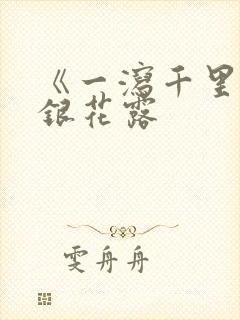 《一瀉千里
銀花露
雯舟舟